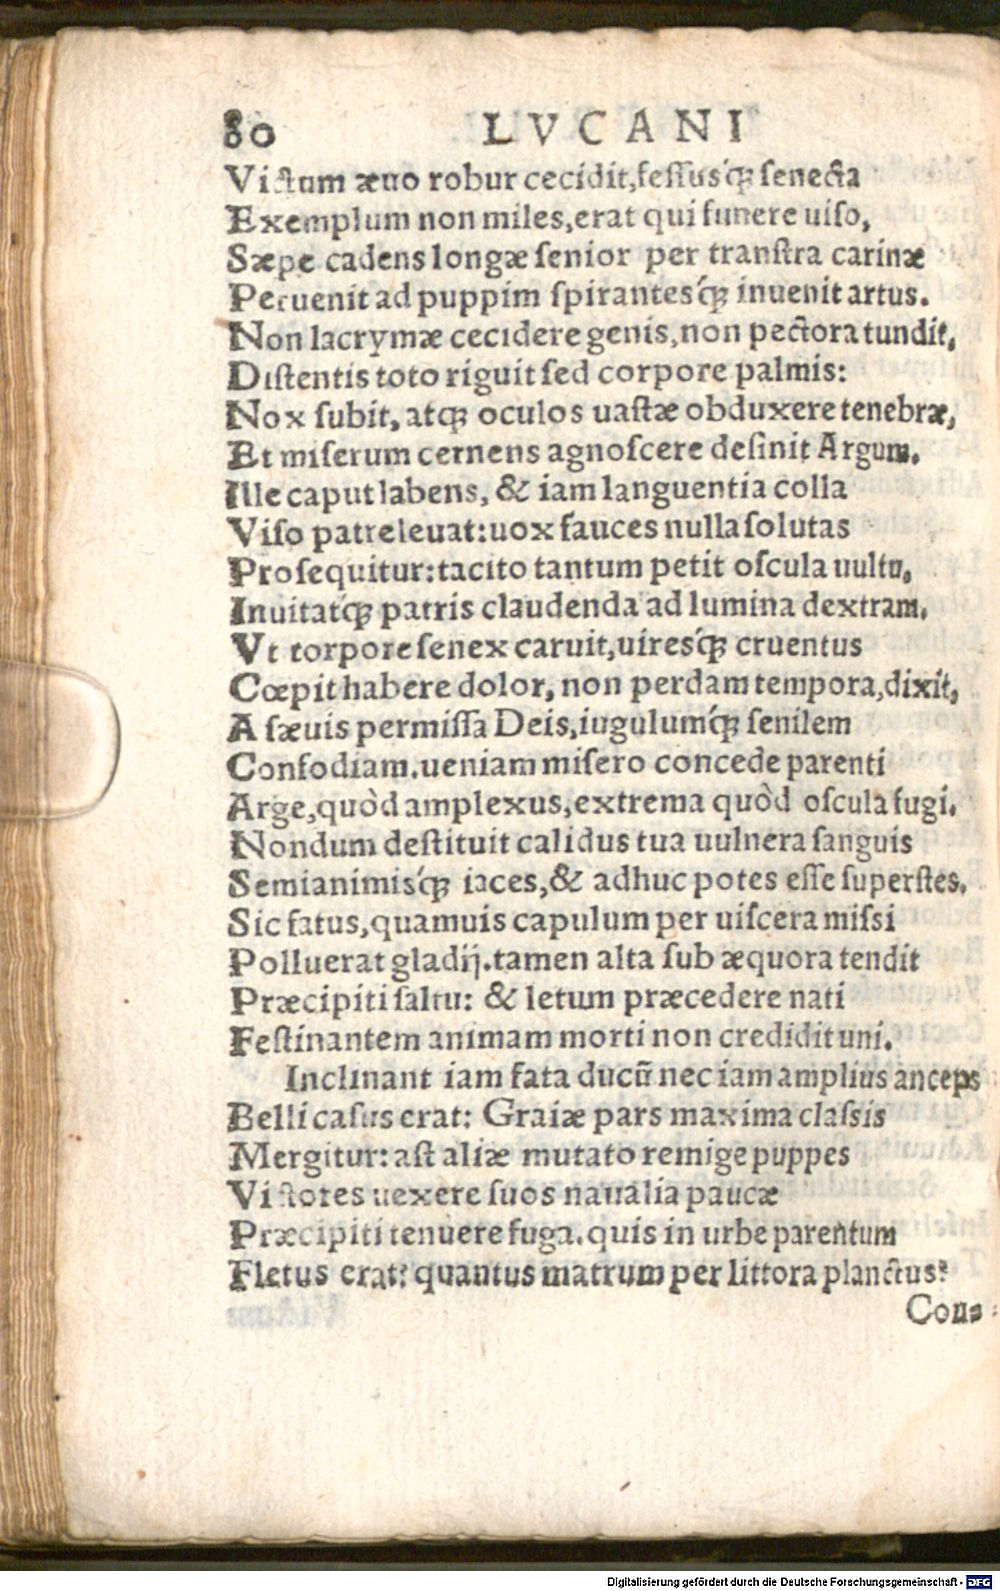 80 LVCANI
Victum æuo robur cecidit, fessusq́; senecta
Exemplum non miles, erat qui funere uiso,
Sæpe cadens longæ senior per transtra carinæ
Peruenit ad puppim spirantesq́; inuenit artus.
Non lacrymæ cecidere genis, non pectora tundit,
Distentis toto riguit sed corpore palmis:
Nox subit, atq; oculos uastæ obduxere tenebræ,
Et miserum cernens agnoscere desinit Argum.
Ille caput labens, & iam languentia colla
Viso patre leuat: uox fauces nulla solutas
Prosequitur: tacito tantum petit oscula uultu,
Inuitatq́; patris claudenda ad lumina dextram.
Vt torpore senex caruit, uiresq́; cruentus
Cœpit habere dolor, non perdam tempora, dixit,
A sæuis permissa Deis, iugulumq́; senilem
Confodiam. ueniam misero concede parenti
Arge, quòd amplexus, extrema quòd oscula fugi.
Nondum destituit calidus tua uulnera sanguis
Semianimisq́; iaces, & adhuc potes esse superstes.
Sic fatus, quamuis capulum per uiscera missi
Polluerat gladij. tamen alta sub æquora tendit
Præcipiti saltu: & letum præcedere nati
Festinantem animam morti non credidit uni.
Inclinant iam fata ducū nec iam amplius anceps
Belli casus erat: Graiæ pars maxima classis
Mergitur: ast aliæ mutato remige puppes
Victores uexere suos naualia paucæ
Præcipiti tenuere fuga. quis in urbe parentum
Fletus erat? quantus matrum per littora planctus?
Con-
Digitalisierung gefördert durch die Deutsche Forschungsgemeinschaft - DFG